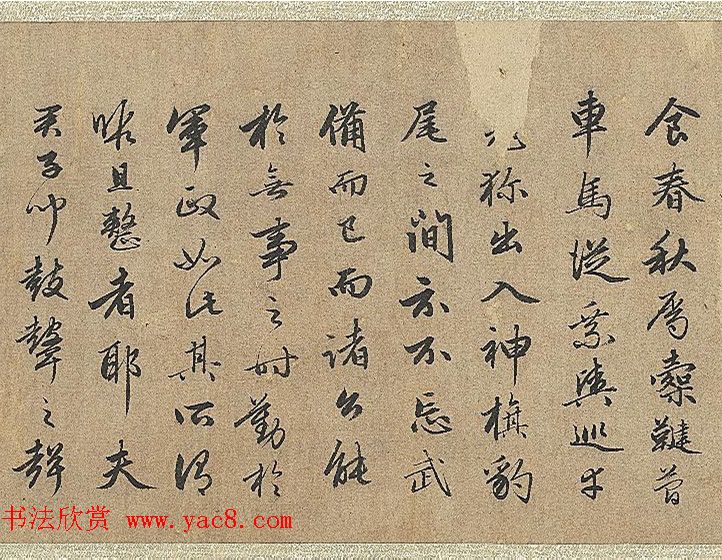 食春秋焉櫜鞬
車馬從乘輿巡
称出入神旗豹
尾之間示不忘武
備而已而諸公能
於無事之時勤於
軍政如此其所謂
暇且整者耶夫
君子聽鼓鼙之聲
书法欣赏 www.yac8.com